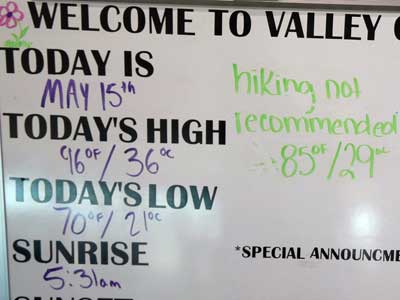 WELCOME TO VALLEY
TODAY IS
MAY 15th
TODAY'S HIGH
96°F/36°C
TODAY'S LOW
70°F/21°C
SUNRISE
5:31am
hiking not
recommended
85°F/29°C
*SPECIAL